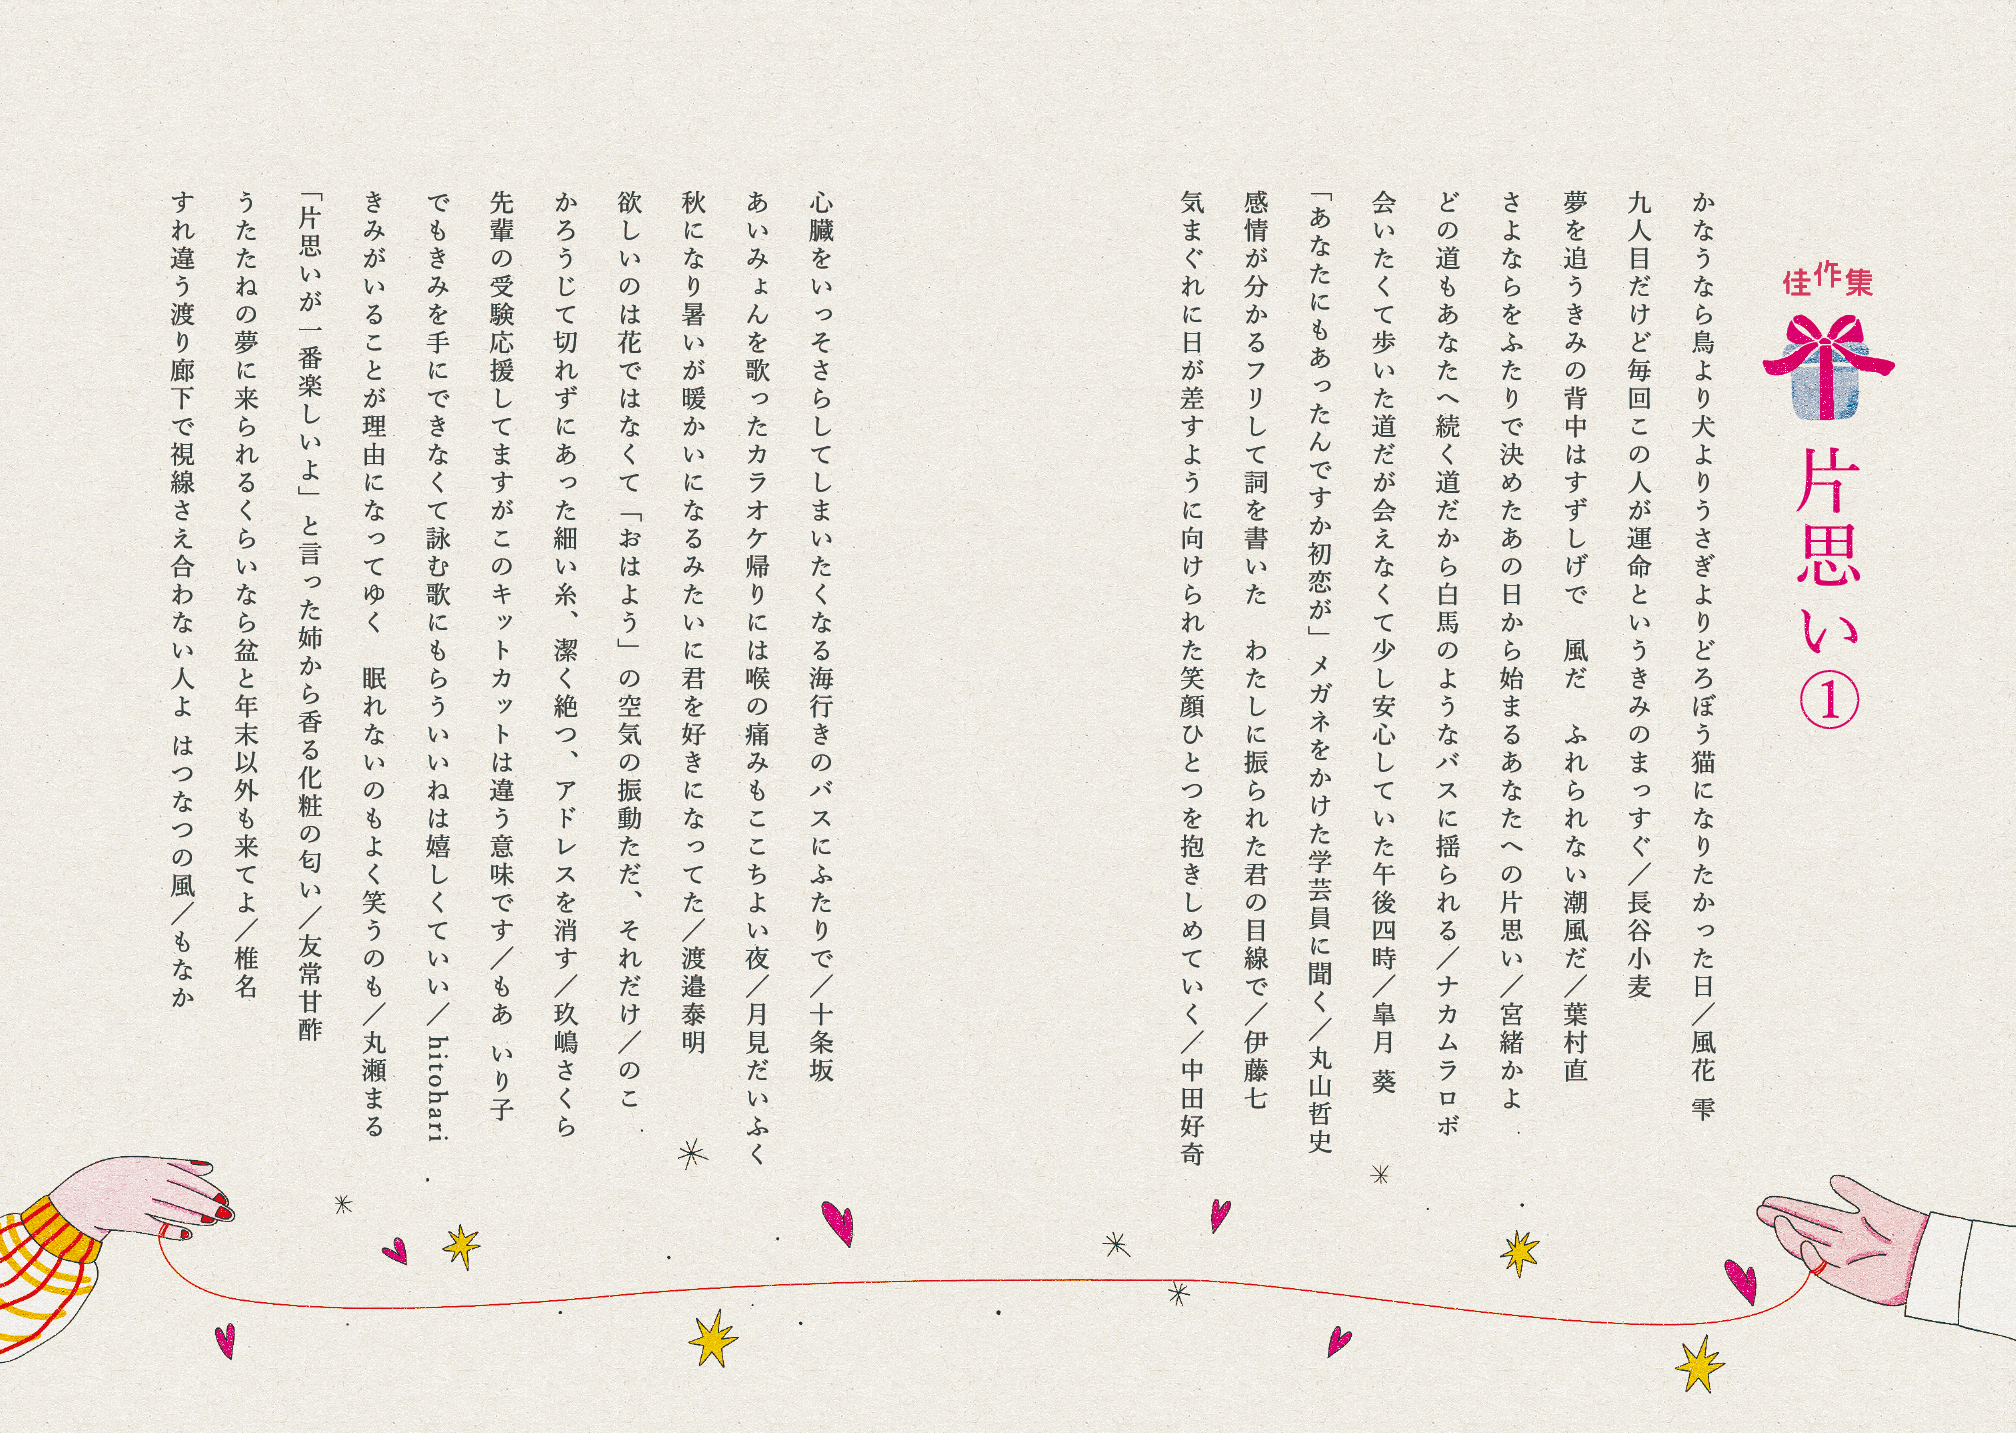 佳作集
片思い①
かなうなら鳥より犬よりうさぎよりどろぼう猫になりたかった日／風花 雫
九人目だけど毎回この人が運命というきみのまっすぐ／長谷小麦
夢を追うきみの背中はすずしげで　風だ　ふれられない潮風だ／葉村直
さよならをふたりで決めたあの日から始まるあなたへの片思い／宮緒かよ
どの道もあなたへ続く道だから白馬のようなバスに揺られる／ナカムラロボ
会いたくて歩いた道だが会えなくて少し安心していた午後四時／皐月 葵
「あなたにもあったんですか初恋が」メガネをかけた学芸員に聞く／丸山哲史
感情が分かるフリして詞を書いた　わたしに振られた君の目線で／伊藤七
気まぐれに日が差すように向けられた笑顔ひとつを抱きしめていく／中田好奇
心臓をいっそさらしてしまいたくなる海行きのバスにふたりで／十条坂
あいみょんを歌ったカラオケ帰りには喉の痛みもここちよい夜／月見だいふく
秋になり暑いが暖かいになるみたいに君を好きになってた／渡邉泰明
欲しいのは花ではなくて「おはよう」の空気の振動ただ、それだけ／のこ
かろうじて切れずにあった細い糸、潔く絶つ、アドレスを消す／玖嶋さくら
先輩の受験応援してますがこのキットカットは違う意味です／もあ いり子
でもきみを手にできなくて詠む歌にもらういいねは嬉しくていい／hitohari
きみがいることが理由になってゆく　眠れないのもよく笑うのも／丸瀬まる
「片思いが一番楽しいよ」と言った姉から香る化粧の匂い／友常甘酢
うたたねの夢に来られるくらいなら盆と年末以外も来てよ／椎名
すれ違う渡り廊下で視線さえ合わない人よ はつなつの風／もなか